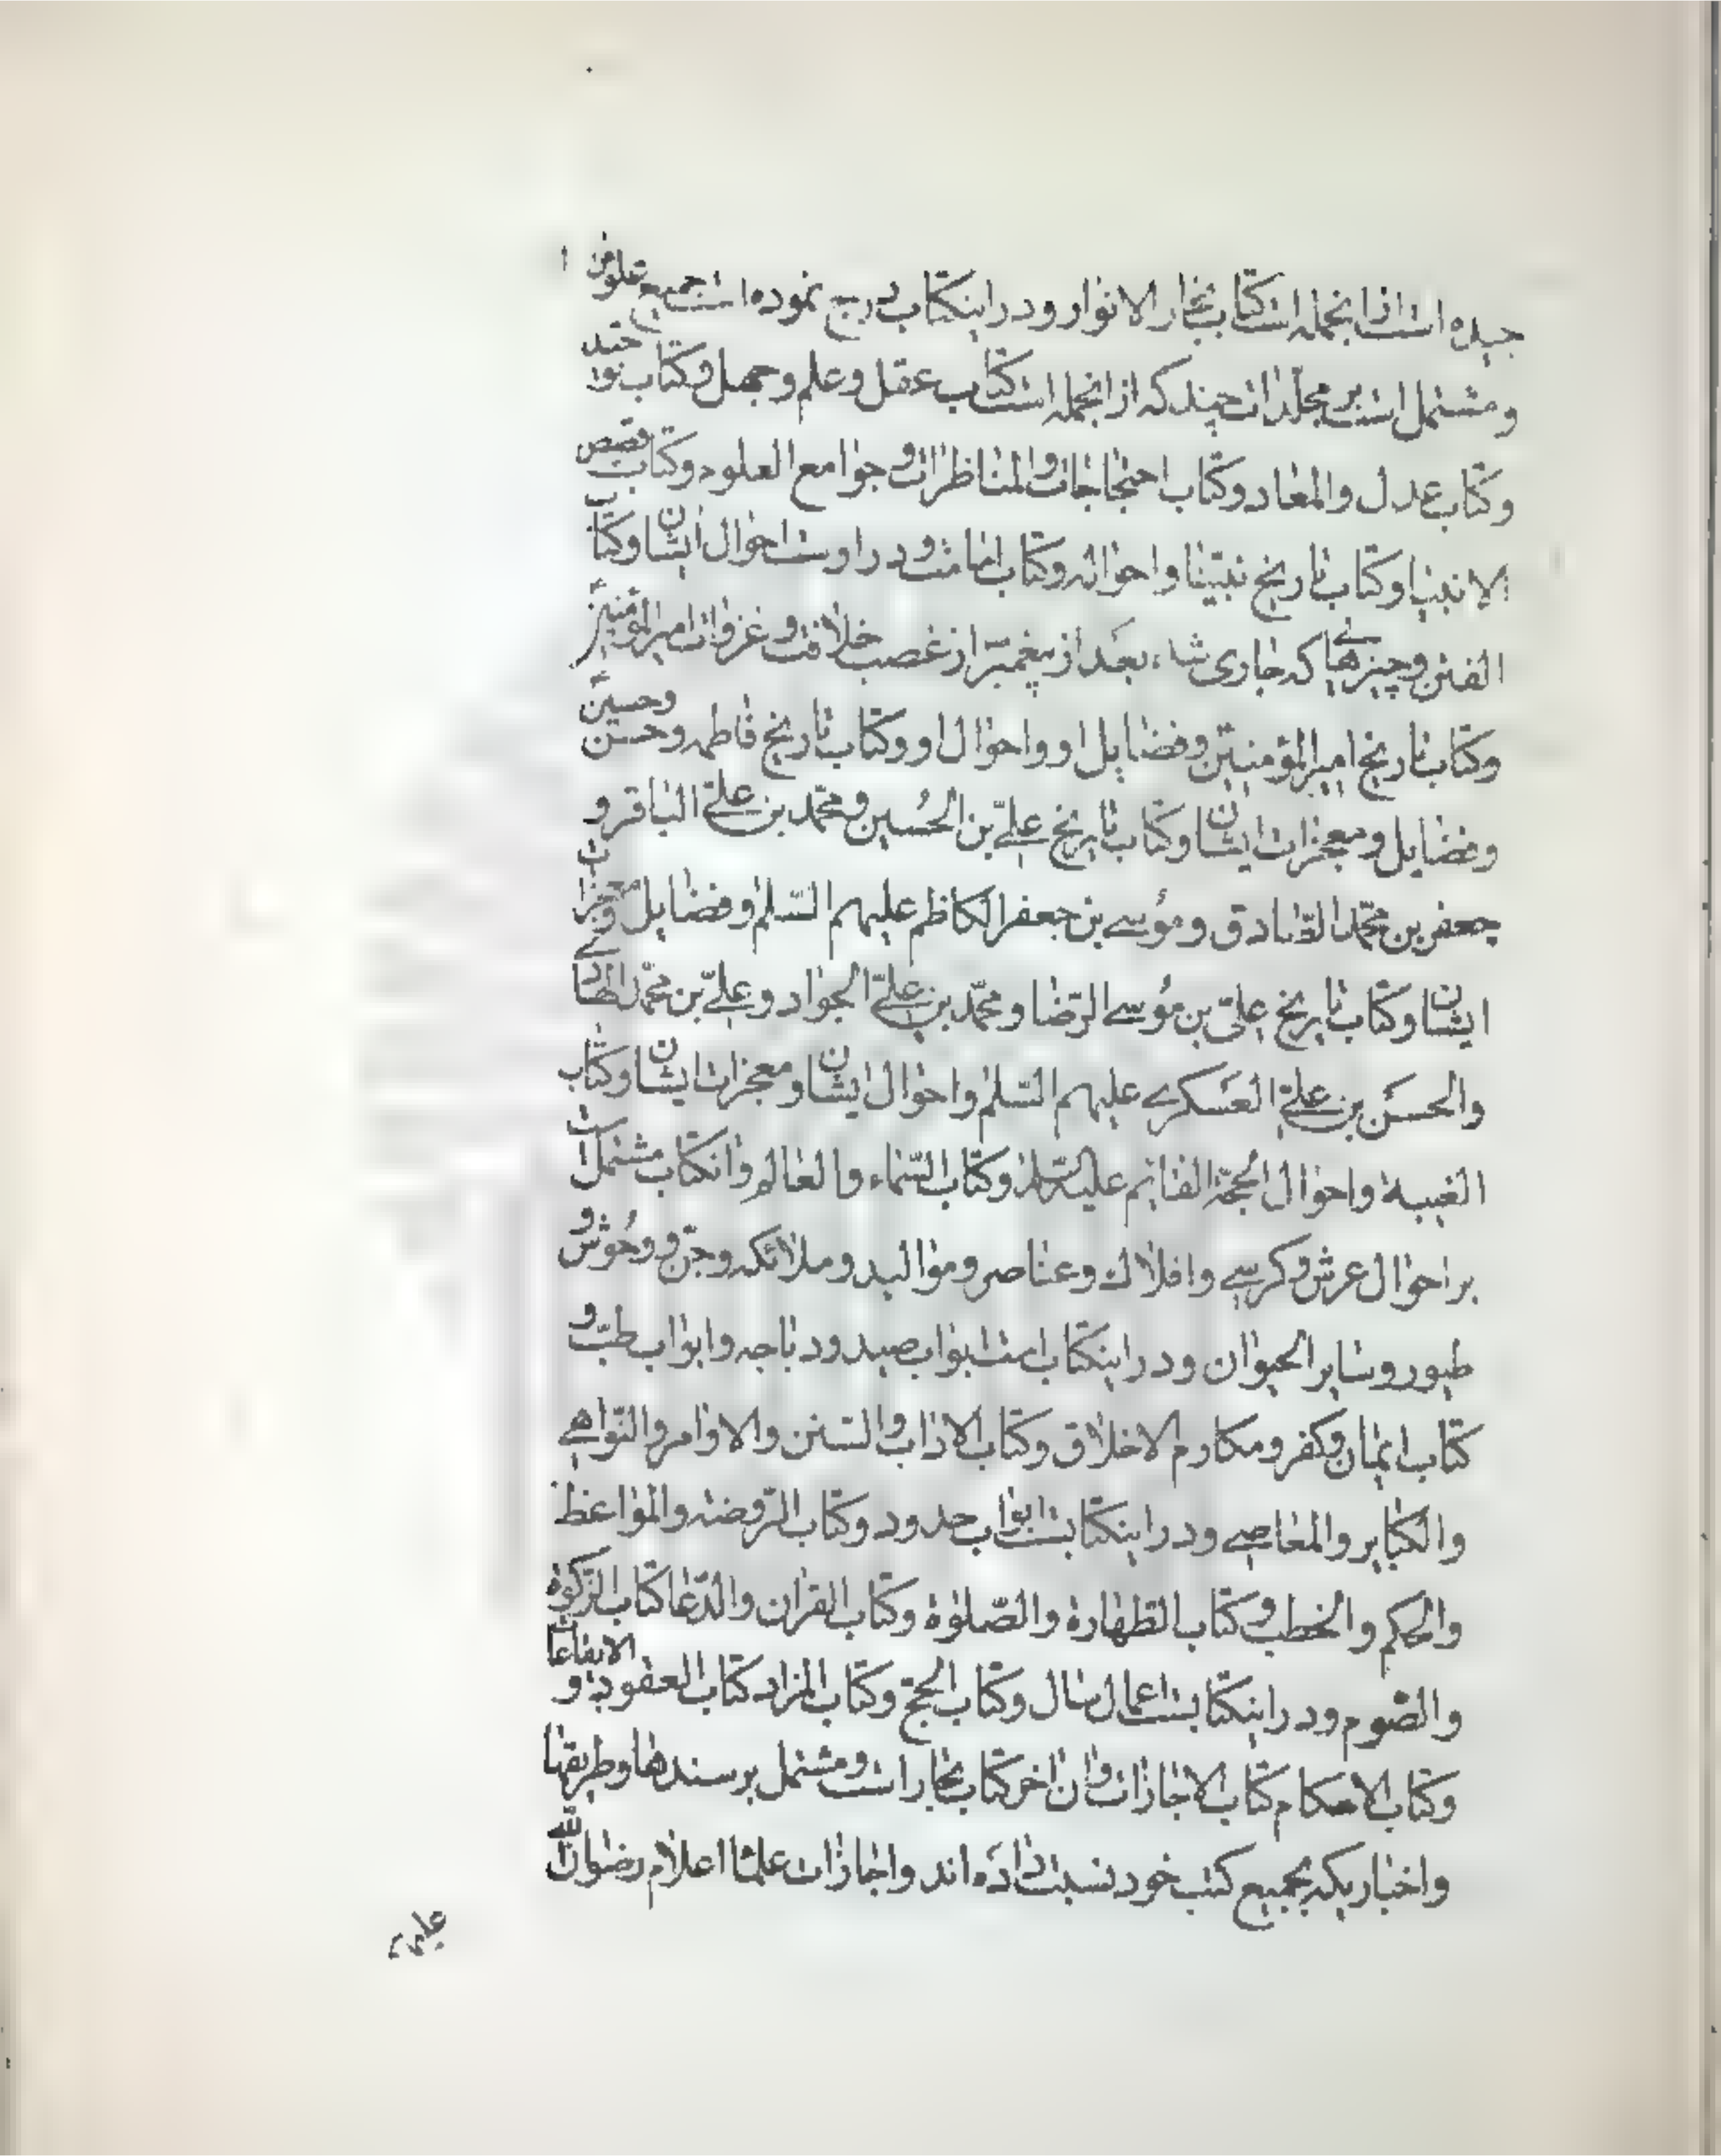 جیده است از انجمله است کتاب بحار الانوار و در اینکتاب درج نموده است جمیع علوم
و مشتمل است بر مجلدات چند که از انجمله است کتاب عقل و علم و جهل و کتاب توحید
و کتاب عدل و المعاد و کتاب احتجاجات و المناظرات و جوامع العلوم و کتاب قصص
الانبیا و کتاب تاریخ نبیّنا و احواله و کتاب امامت و در اوست احوال ایشان و کتاب
الفتن و چیزهائی که جاری شد بعَد از پیغمبر از غصب خلافت و غزوات امیرالمؤمنین
و کتاب تاریخ امیرالمؤمنین و فضایل او و احوال او و کتاب تاریخ فاطمه و حسن و حسین
و فضایل و معجزات ایشان و کتاب تاریخ علیّ بن الحُسین و محمّد بن علیّ الباقر و
جعفر بن محمّد الصّادق و مُوسی بن جعفر الکاظم علیهم السّلم و فضایل و معجزات
ایشان و کتاب تاریخ علیّ بن مُوسی الرّضا و محمّد بن علیّ الجواد و علیّ بن محمّد الهادی
و الحسَن بن علیّ العَسکری علیهم السّلم و احوال ایشان و معجزات ایشان و کتاب
الغیبة و احوال الحُجّة القایم علیه السّلم و کتاب السّماء و العالم و انکتاب مشتمل است
بر احوال عرش و کرسی و افلاک و عناصر و موالید و ملائکه و جنّ و وحُوش و
طیور و سایر الحیوان و در اینکتاب است ابواب صید و دباجه و ابواب طبّ و
کتاب ایمان و کفر و مکاوم الاخلاق و کتاب الاداب و السّنن و الاوامر و النّواهی
و الکبایر و المعاصی و در اینکتابست ابواب حدود و کتاب الرّوضه و المواعظ
و الحکم و الخطب و کتاب الطّهارة و الصّلوة و کتاب القران و الدّعا کتاب الزّکوة
و الصّوم و در اینکتابست اعمال سال و کتاب الحجّ و کتاب المزار کتاب العقود و الایقاعات
و کتاب الاحکام کتاب الاجازات و ان اخر کتاب بحار است و مشتمل بر سندها و طریقها
و اخباریکه بجمیع کتب خود نسبت داده اند و اجازات علما اعلام رضوان الله
علیهم